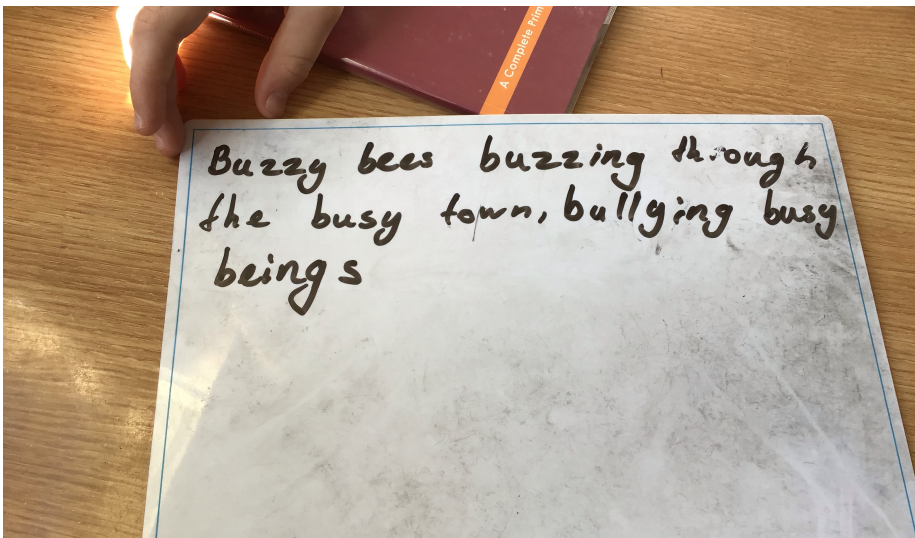 A Complete Prim
Buzzy bees buzzing through
the busy town, bullying busy
beings